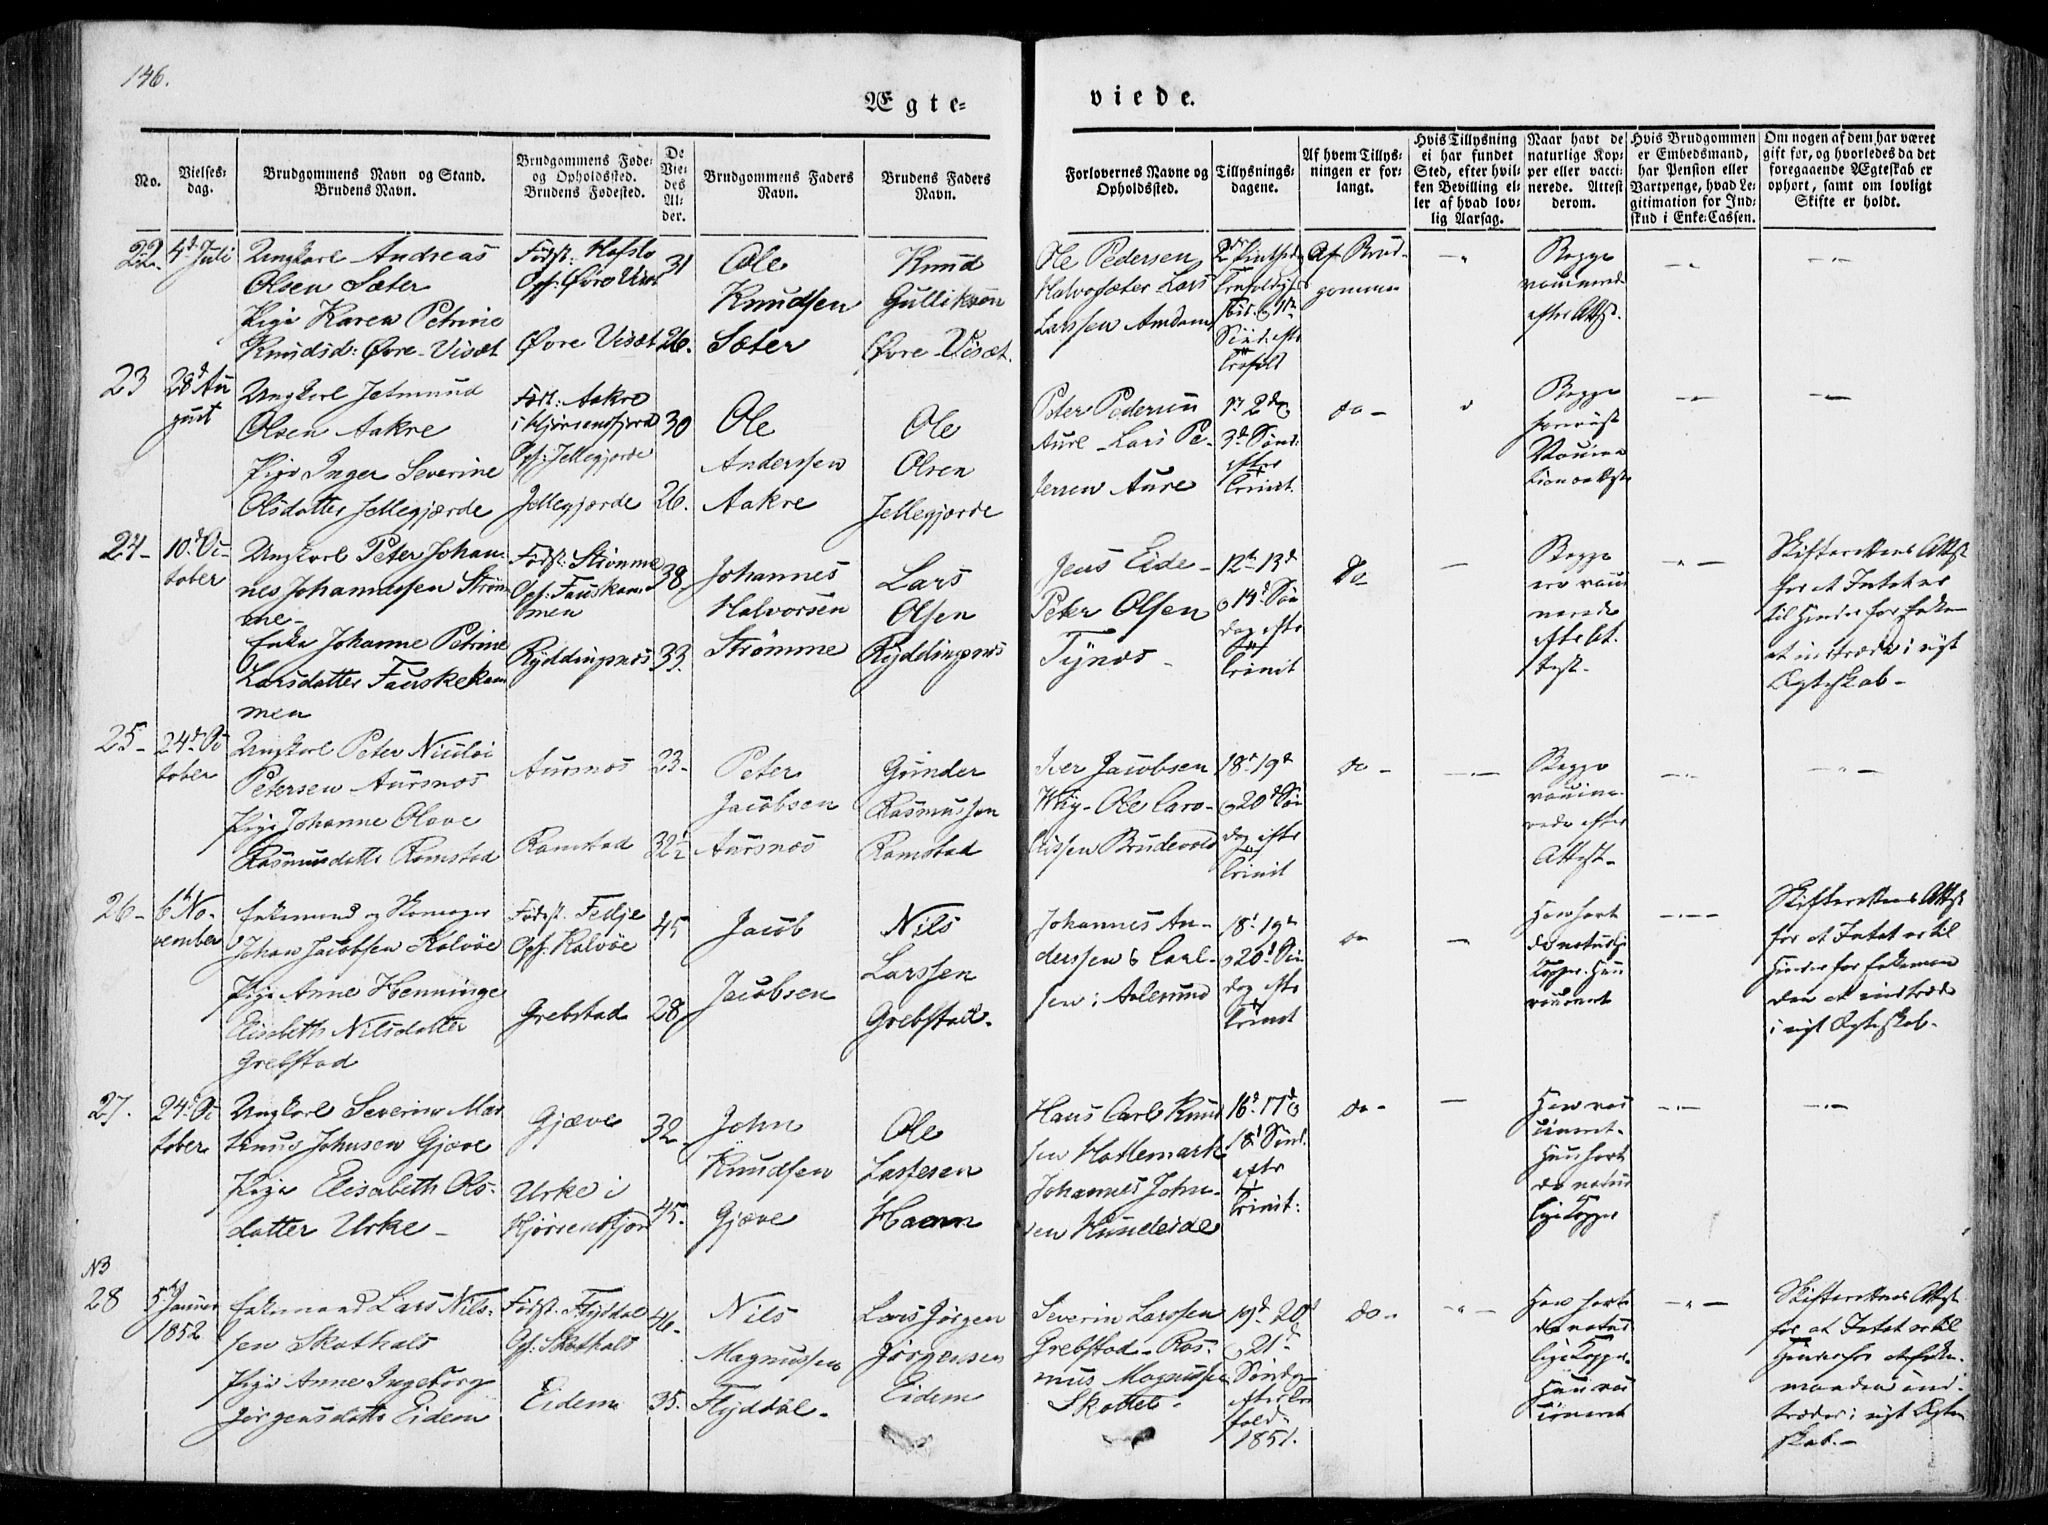 146.
Ægte-
viede.
No.
Vielses-
dag.
Brudgommens Navn og Stand.
Brudens Navn.
Brudgommens Føde-
og Opholdssted.
Brudens Fødested.
De
Vie-
des
Al-
der.
Brudgommens Faders
Navn.
Brudens Faders
Navn.
Forlovernes Navne og
Opholdssted.
Tillysnings-
dagene.
Af hvem Tillys-
ningen er for-
langt.
Hvis Tillysning
ei har fundet
Sted, efter hvil-
ken Bevilling el-
ler af hvad lov-
lig Aarsag.
Naar havt de
naturlige Kop-
per eller vacci-
nerede. Attest
derom.
Hvis Brudgommen
er Embedsmand,
har Pension eller
Vartpenge, hvad Le-
gitimation for Ind-
skud i Enke-Cassen.
Om nogen af dem har været
gift før, og hvorledes da det
foregaaende Ægteskab er
ophørt, samt om lovligt
Skifte er holdt.
22.
4d Juli
Ungkarl Andreas
Olsen Sæter
Pige Karen Petrine
Knudsd: Øvre-Viset
Født: Hofslo
Opf: Øvre Viset
Øvre Viset
31
26.
Ole
Knudsen
Sæter
Knud
Gulliksen
Øvre-Viset.
Ole Pedersen
Halvosæter Lars
Larssen Amdam
Sønd. efter
Af Brud-
gommen
Begge
vaccinerede
efter Attst.
23
28d Au
gust
Ungkarl Jetmund
Olsen Aakre
Pige Inger Severine
Olsdatter Jellegjærde
Født: Aakre
i Hjørrendfjord
Opf: Jellegjærde
Jellegjærde
30
26.
Ole
Anderssen
Aakre
Ole
Olsen
Jellegjærde
Peter Pedersen
Aure - Lars Pe-
dersen Aure
1st 2d og
3d Sønd.
efter
Trinit.
do -
Begge
24-
10d Oc-
tober
Ungkarl Peter Johan
nes Johannessen Strøm
me-
Enke Johanne Petrine
Larsdatter Fauskekam
men
Født: Strømme
Opf: Fauskam
men
Ryddingsnes
38
33.
Johannes
Halvorsen
Strømme
Lars
Olsen
Ryddingsnes
Jens Eide -
Peter Olsen
Tynes -
12te 13d
og 14d Søn
dag efter
Trinit
Do
Begge
ere vacci
nerede
efter At-
test-
Skifterettens Attst
for at Intet er
til Hinder for Enken
at indtræde i nyt
Ægteskab -
25-
24d Oc
tober
Ungkarl Peter Nicolai
Petersen Aursnes
Pige Johanne Olave
Rasmusdatter Ramstad
Aursnes
Ramstad
23-
32½
Peter
Jacobsen
Aursnes
Gunder
Rasmussen
Ramstad
Iver Jacobsen
Wiig - Ole Caro-
liussen Brudevold
18d 19d
og 20d Søn
dag efter
Trinit
do -
Begge
vaccine-
rede efter
Attest-
26-
6te No-
vember
Enkemand og Skomager
Johan Jacobsen Kalvøe
Pige Anne Henninge
Elisabeth Nilsdatter
Grebstad
Født: Fedje
Opf: Kalvøe
Grebstad
45
28
Jacob
Jacobsen
Nils
Larssen
Grebstad.
Johannes An-
derssen & Carl-
sen i Aalesund
18d 19d
og 20d Søn
dag efter
Trinit
do
Han havt
de naturlige
Kopper. Hun
vaccineret
Skifterettens Attst
for at Intet er til
Hinder for Enkeman
den at indtræde
i nyt Ægteskab-
27.
24d Oc
tober
Ungkarl Severin Mar
thinus Johnsen Gjæve
Pige Elisabeth Ols-
datter Urke -
Gjæve
Urke i
Hjørrendfjord
32
45.
John
Knudsen
Gjæve
Ole
Lassesen
Haann
Hans Carl Knud
sen Hattemark
Johannes John-
sen Kundeide
16d 17d og
18d Sønd.
efter
Trinit:
do -
Han vac
cineret-
Hun havt
de natur
lige Kopper
NB
28
5te Januar
1852
Enkemand Lars Nils-
sen Skothals
Pige Anne Ingeborg
Jørgensdatter Eidem
Født: Flyddal
Opf: Skothals
Eidem
46-
35.
Nils
Magnussen
Flyddal -
Lars Jørgen
Jørgensen
Eidem
Severin Larssen
Grebstad - Ras-
mus Magnussen
Skottet -
19d 20d
og 21d
Sønd.
1851.
do -
Han havt
de natur
lige Kopper-
Hun vac
cineret
Skifterettens Attst
for at Intet er til
Hinder for at Enke-
manden ind-
træder i nyt Ægte
skab.-